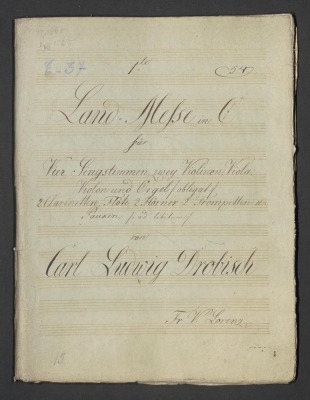 E-37
1te
Land-Messe in C
für
Vier Singstimmen, zwey Violinen, Viola,
Violon und Orgel /: obligat :/
2 Clarinetten, Flöte, 2 Hörner 2 Trompetten u.
Pauken
von
Carl Ludwig Drobisch
Fr. Lorenz